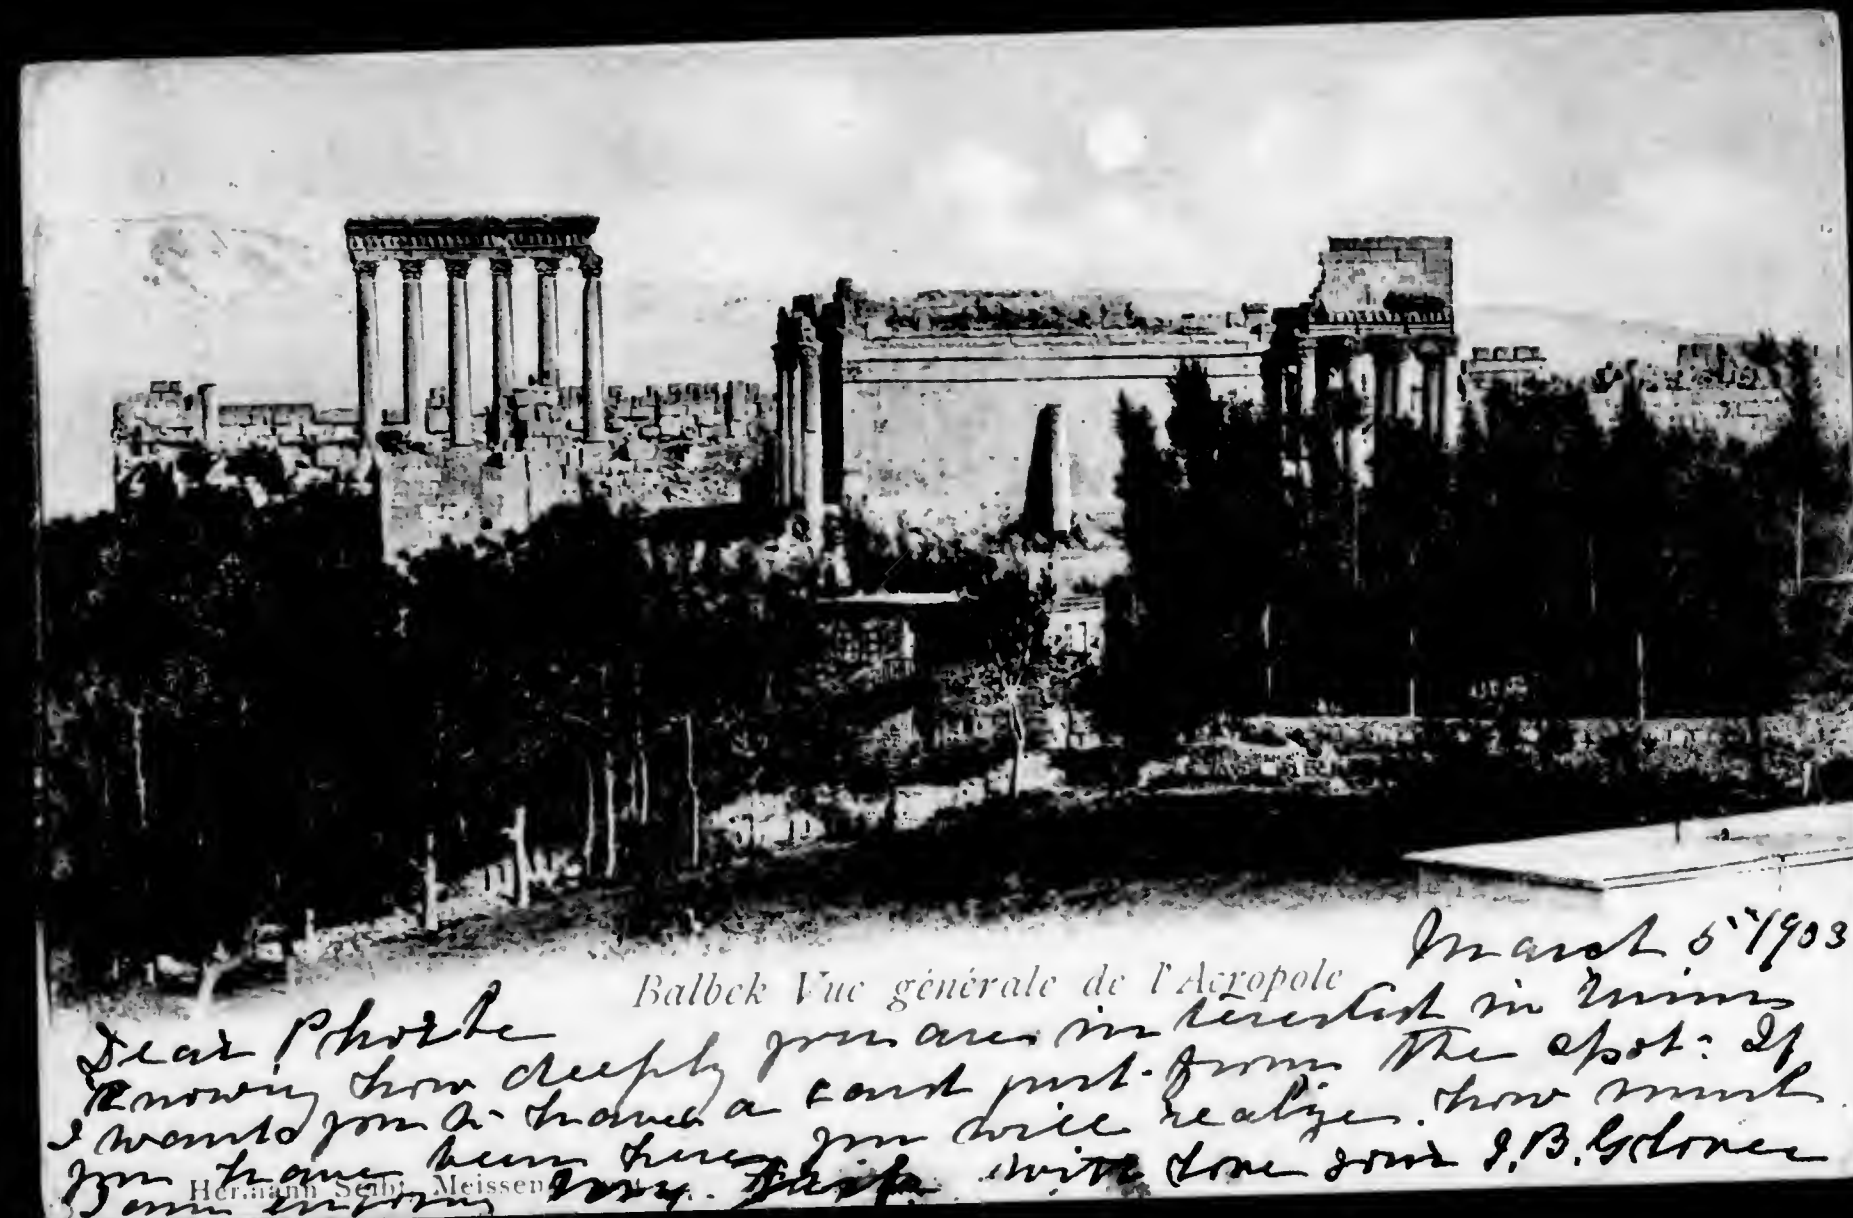 March 5th 1903
Balbek Vue générale de l'Acropole
Dear Phoebe
Knowing how deeply you are interested in ruins
I want you to have a card just from the spot. If
you have been here you will realize how much
I am enjoying with love your J. B. Glover
Hermann Seibt, Meissen